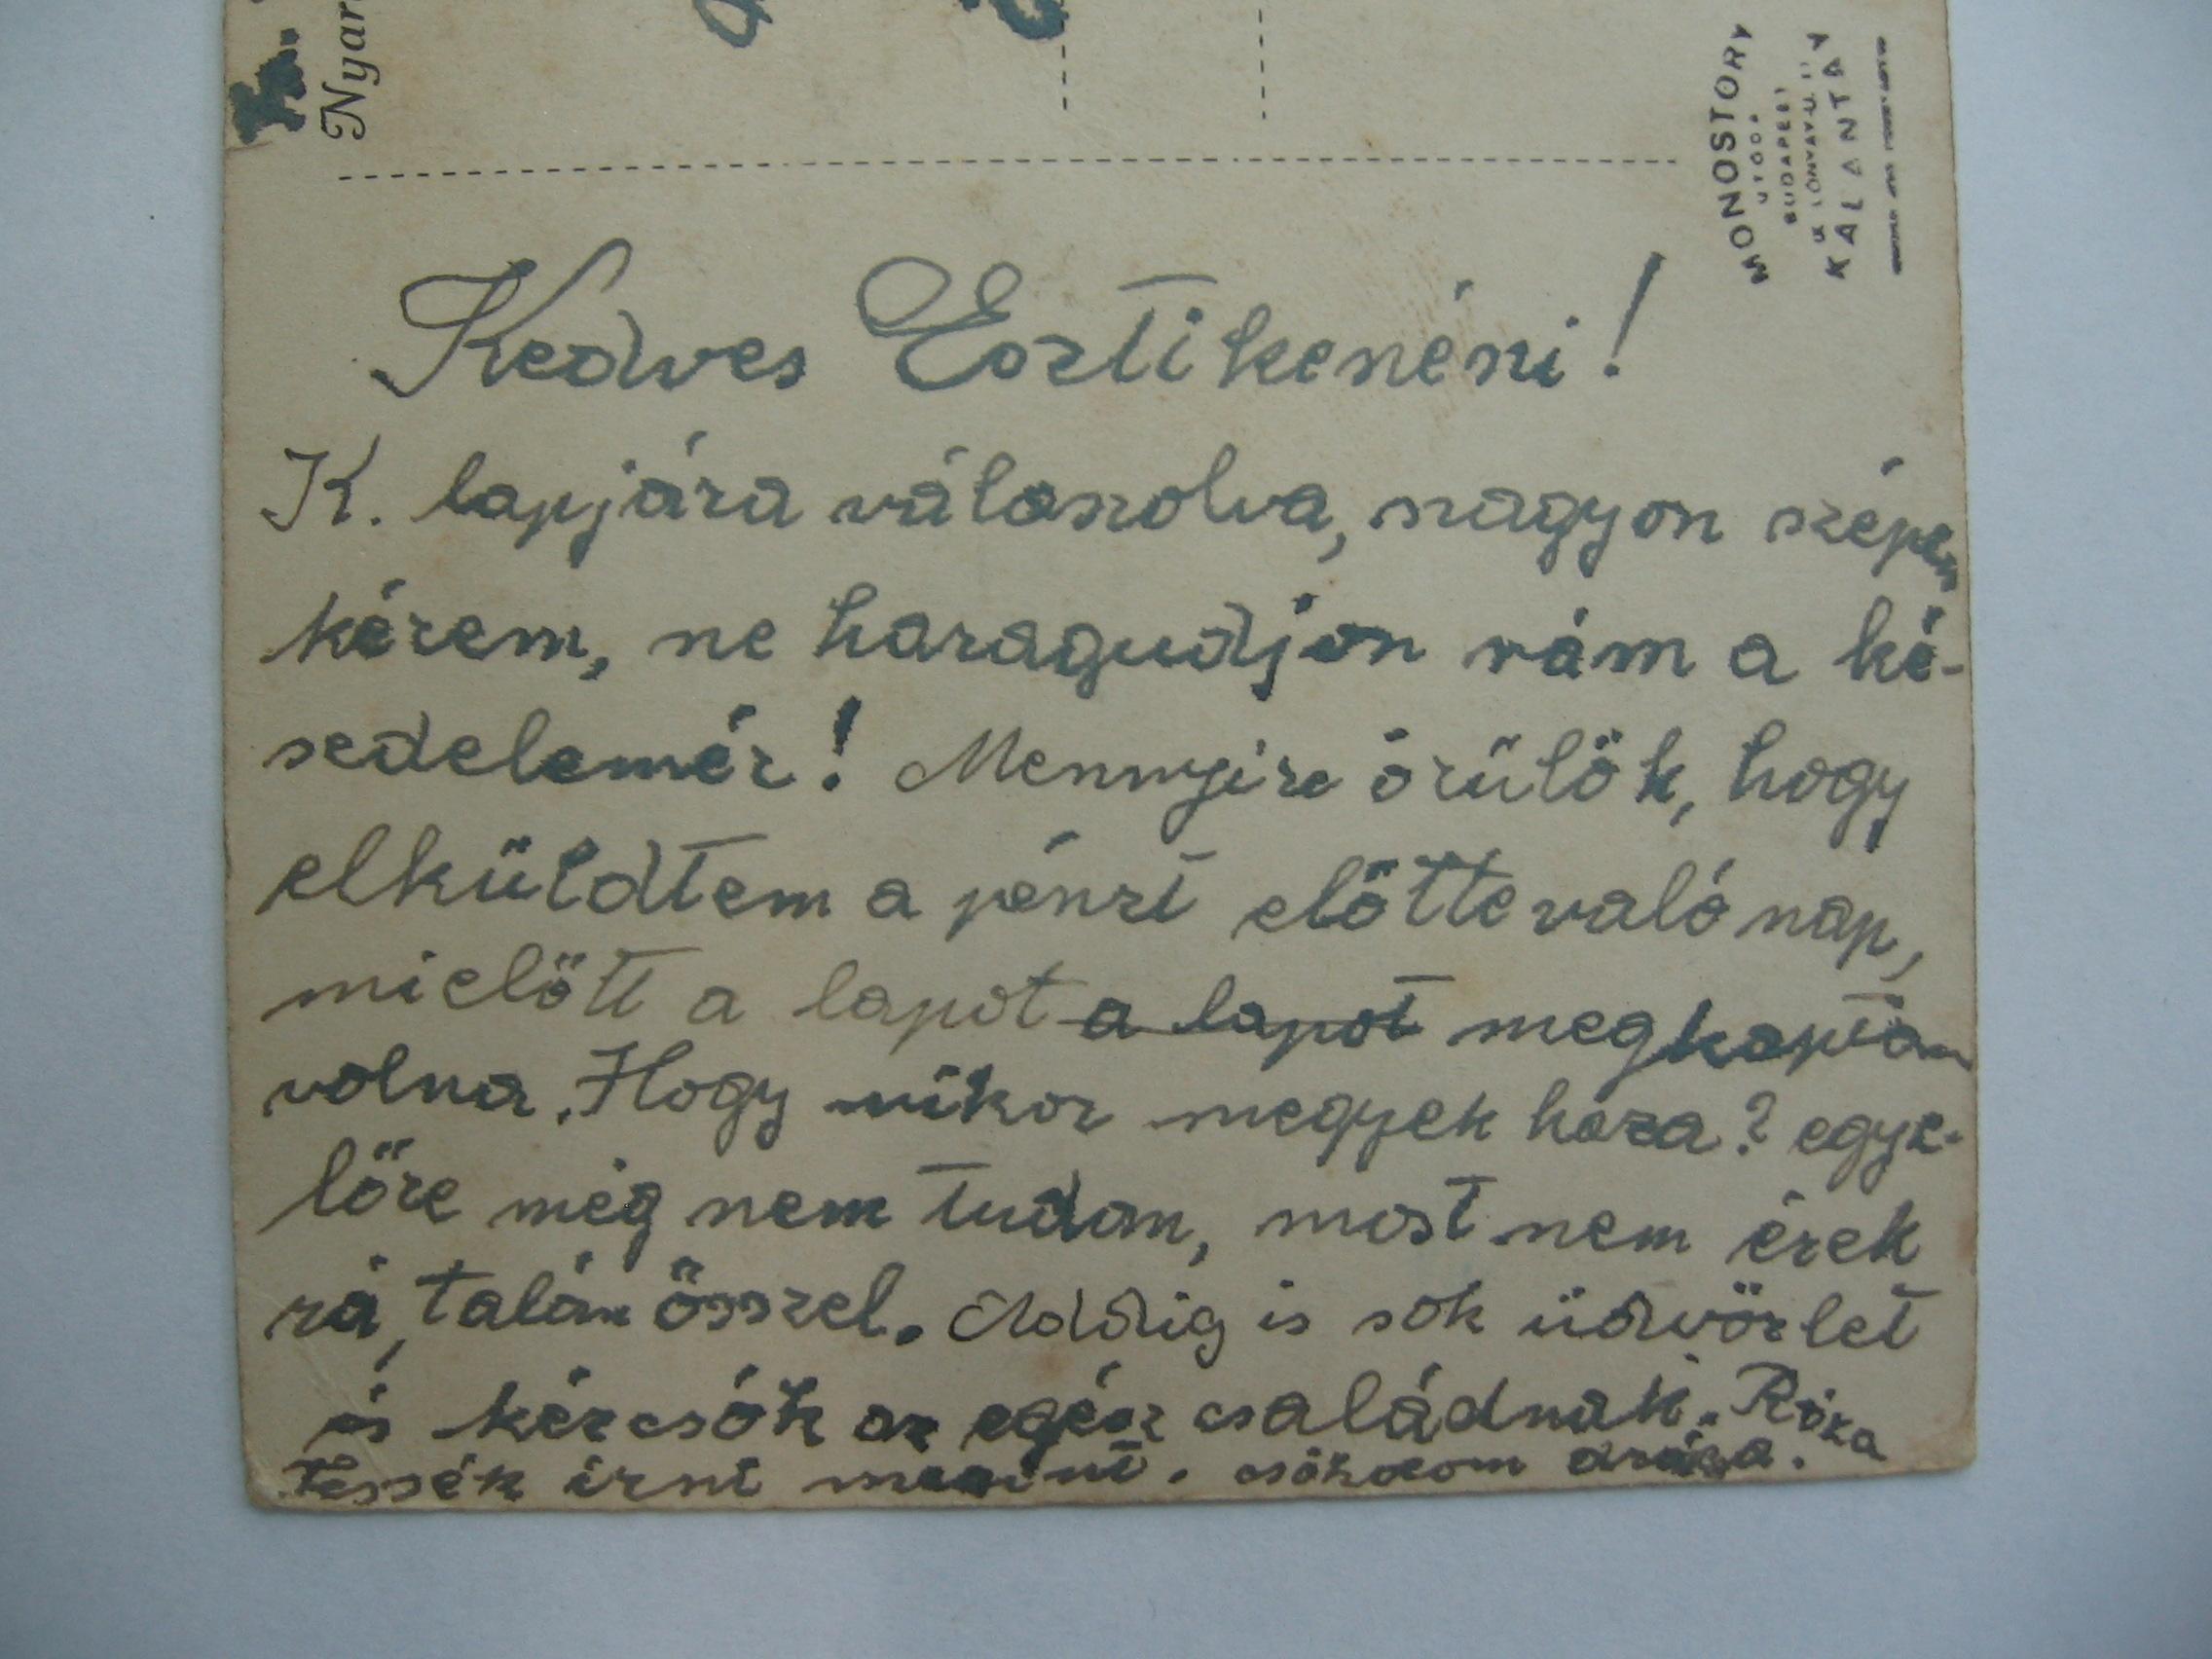 Nyar
MONOSTORY
UTÓDA
BUDAPEST
KALANTAY
Kedves Esztikenéni!
K. lapjára válaszolva, nagyon szépen
kérem, ne haragudjon rám a ké-
sedelemér! Mennyire örülök, hogy
elküldtem a pénzt előtte való nap,
mielőtt a lapot a lapot megkaptam
volna. Hogy mikor megyek haza? egye-
lőre még nem tudom, most nem érek
rá, talán ősszel. Addig is sok üdvözlet
és kézcsók az egész családnak. Róza
Tessék írni megint. csókolom drága.